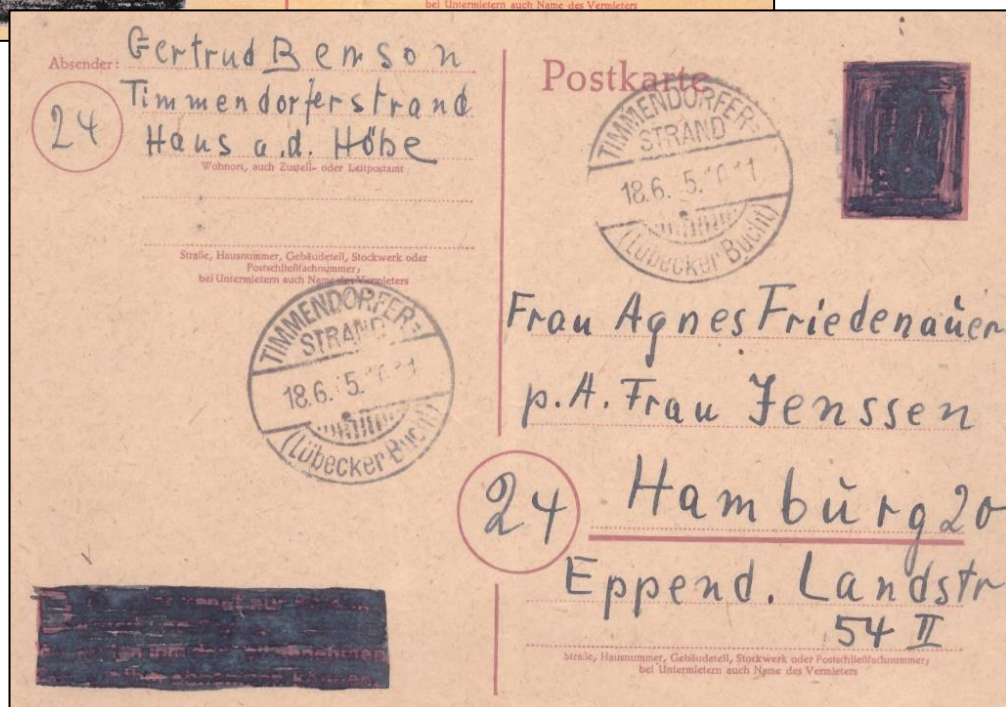 bei Untermietern auch Name des Vermieters
Absender: Gertrud Bemson
Timmendorferstrand
24
Haus a.d. Höhe
Wohnort, auch Zustell- oder Leitpostamt
Straße, Hausnummer, Gebäudeteil, Stockwerk oder
Postschließfachnummer;
bei Untermietern auch Name des Vermieters
Postkarte
TIMMENDORFER-
STRAND
18.6. 5.
(Lübecker Bucht)
TIMMENDORFER-
STRAND
18.6. 5.
(Lübecker Bucht)
Frau Agnes Friedenauer
p.A. Frau Jenssen
24 Hamburg 20
Eppend. Landstr
54 II
Straße, Hausnummer, Gebäudeteil, Stockwerk oder Postschließfachnummer;
bei Untermietern auch Name des Vermieters